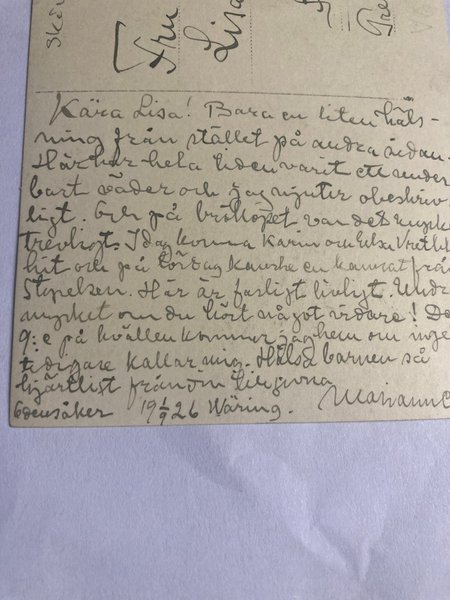 Fru
Lisa
Kära Lisa! Bara en liten häls-
ning från stället på andra sidan.
Här har hela tiden varit ett under
bart väder och jag njuter obeskriv
ligt. Och på bröllopet var det mycke
trevligt. Idag komma Karin och
hit och på lördag kanske en kamrat frå
Här är farligt livligt. Undr
mycket om du hört något vidare! De
9:e på kvällen kommer jag hem om
tidigare kallar mig. Hälsa barnen så
hjärtligt från din tillgivna
Marianne
Edensåker 19 1/9 26 Wäring.